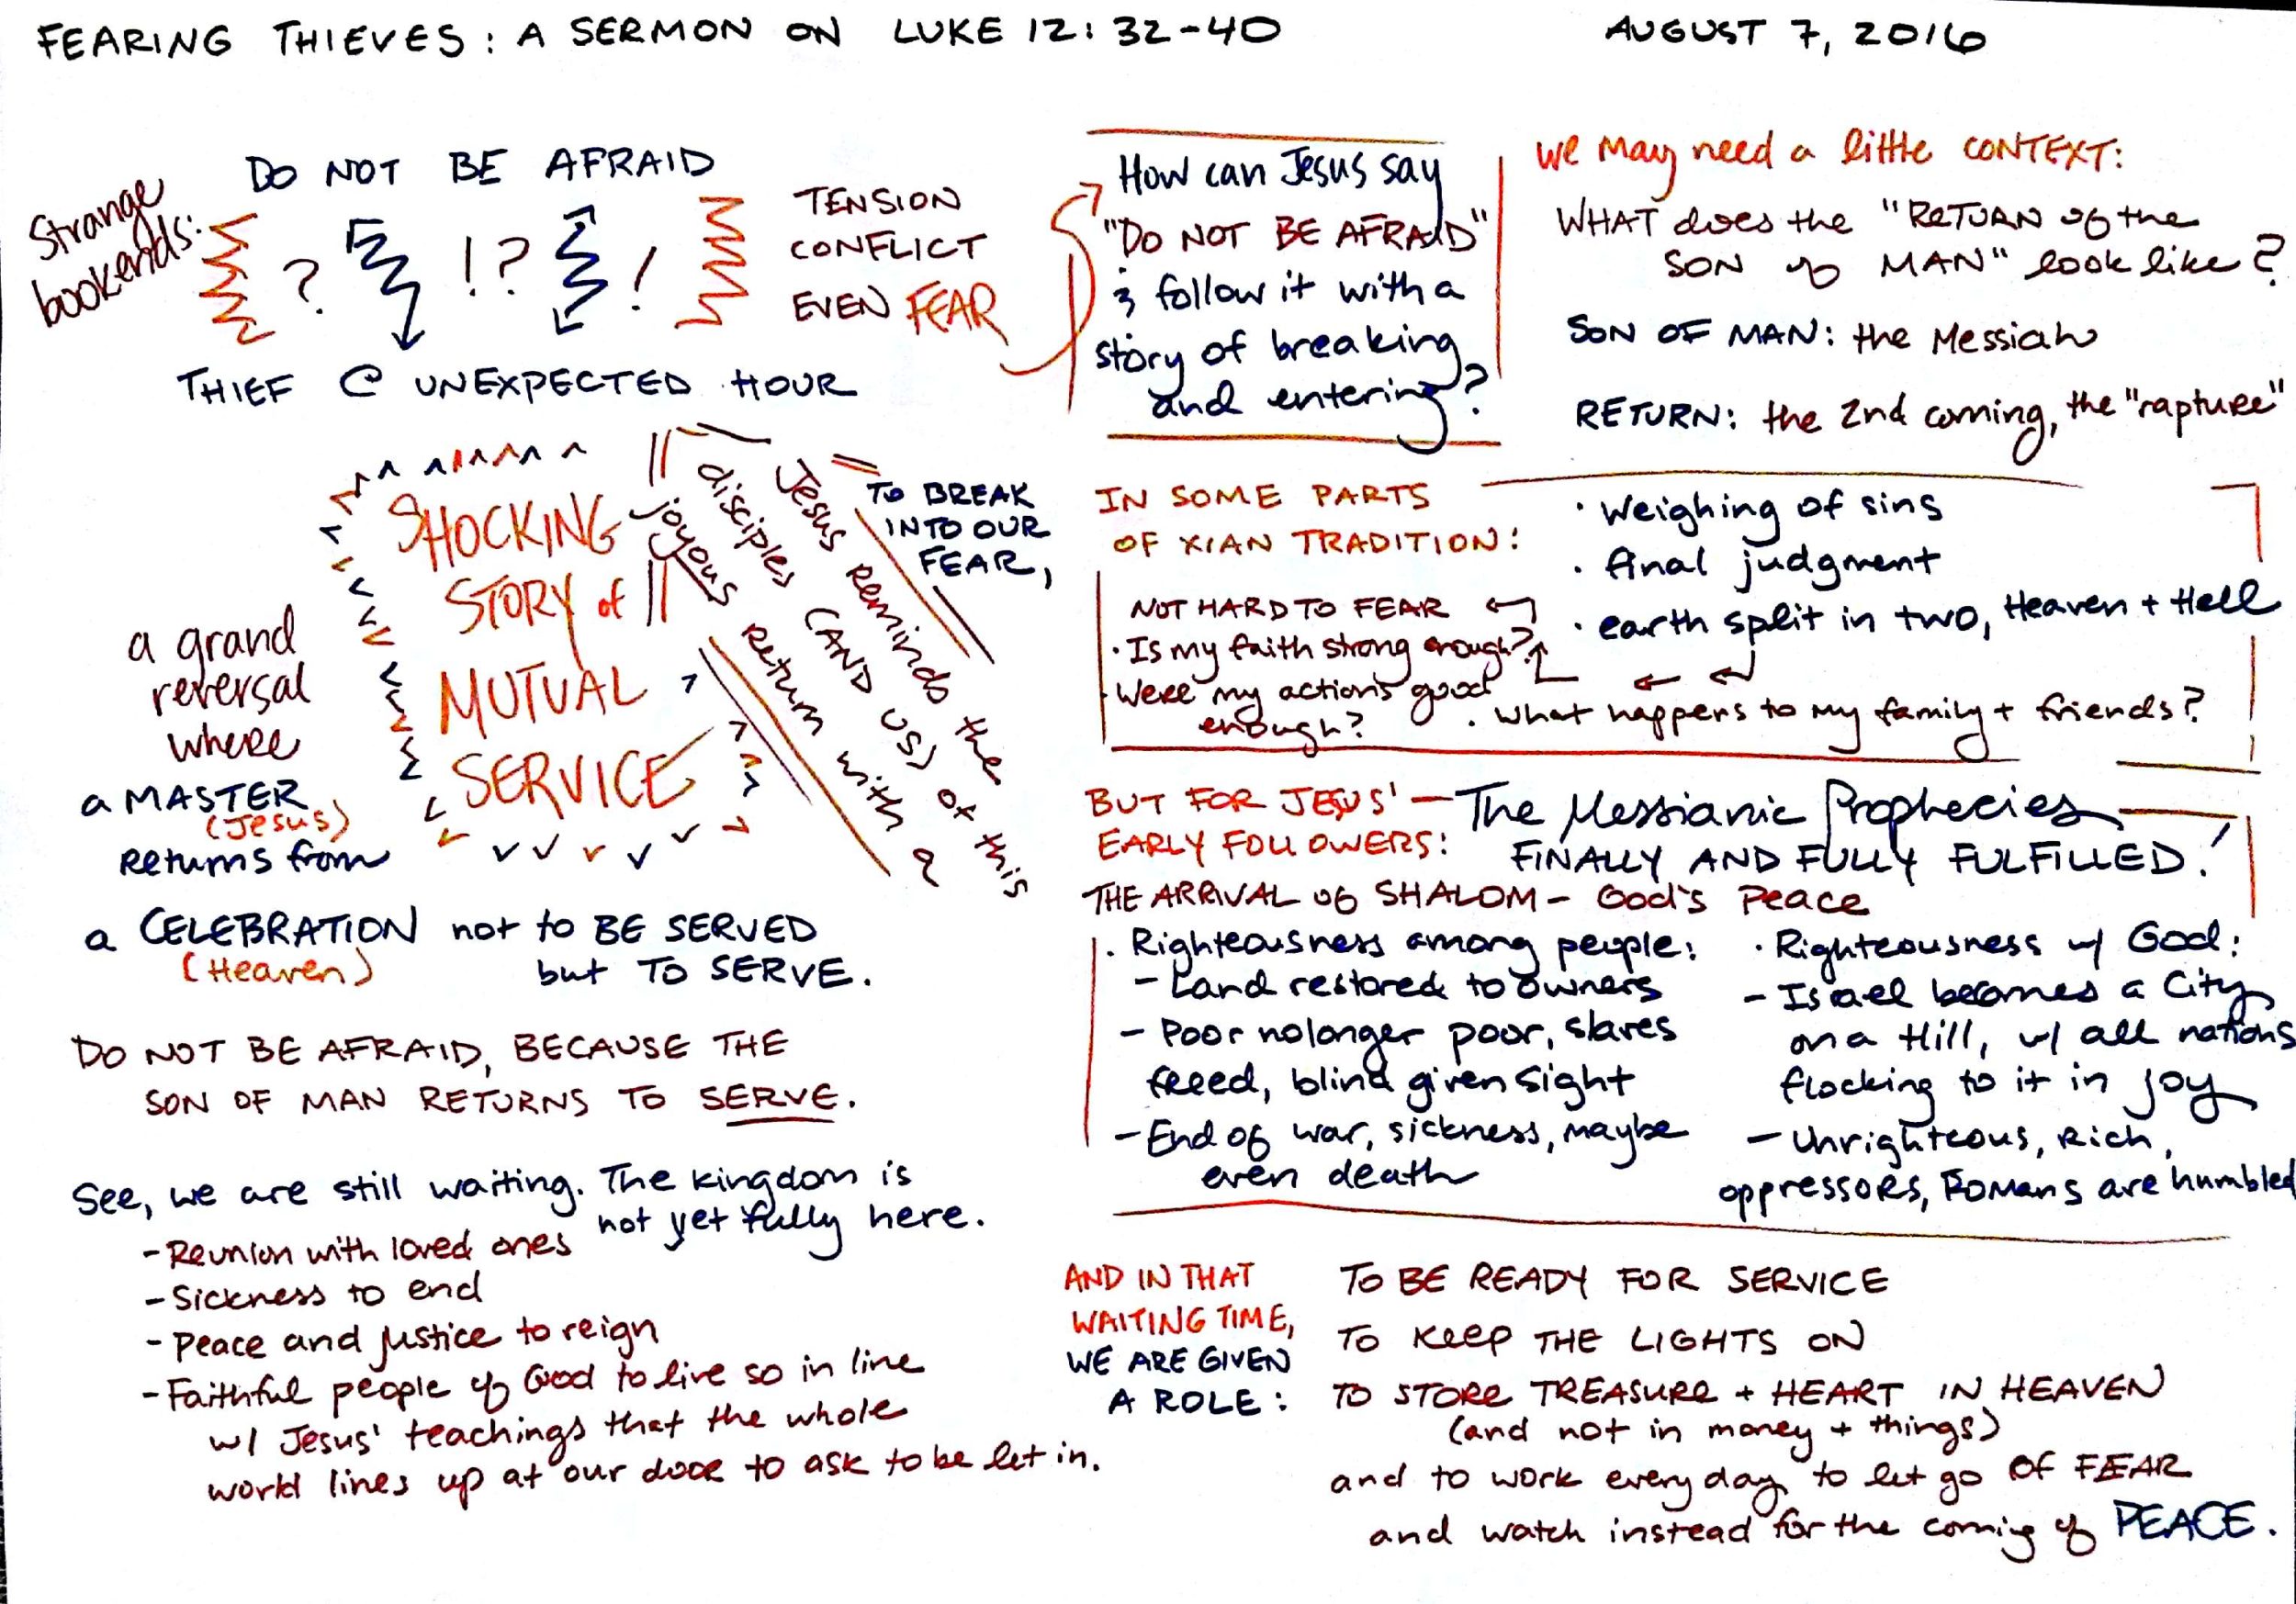 FEARING THIEVES: A SERMON ON LUKE 12:32-40
AUGUST 7, 2016
Strange
bookends:
DO NOT BE AFRAID
? !? !
THIEF @ UNEXPECTED HOUR
TENSION
CONFLICT
EVEN FEAR
How can Jesus say
"DO NOT BE AFRAID"
& follow it with a
story of breaking
and entering?
we may need a little CONTEXT:
WHAT does the "RETURN of the
SON of MAN" look like?
SON OF MAN: the Messiah
RETURN: the 2nd coming, the "rapture"
IN SOME PARTS
OF XIAN TRADITION:
· Weighing of sins
· final judgment
· earth split in two, Heaven + Hell
NOT HARD TO FEAR
· Is my faith strong enough?
· Were my actions good
enough?
· what happens to my family + friends?
BUT FOR JESUS'
EARLY FOLLOWERS:
— The Messianic Prophecies
FINALLY AND FULLY FULFILLED!
THE ARRIVAL of SHALOM - God's Peace
· Righteousness among people:
- Land restored to owners
- Poor no longer poor, slaves
freed, blind given sight
- End of war, sickness, maybe
even death
· Righteousness w/ God:
- Israel becomes a City
on a Hill, w/ all nations
flocking to it in joy
- Unrighteous, Rich,
oppressors, Romans are humbled
TO BREAK
INTO OUR
FEAR,
Jesus reminds the
disciples (AND US) of this
joyous return with a
SHOCKING
STORY of
MUTUAL
SERVICE
a grand
reversal
where
a MASTER
(Jesus)
returns from
a CELEBRATION not to BE SERVED
(Heaven)
but TO SERVE.
DO NOT BE AFRAID, BECAUSE THE
SON OF MAN RETURNS TO SERVE.
See, we are still waiting. The kingdom is
not yet fully here.
- Reunion with loved ones
- Sickness to end
- Peace and justice to reign
- Faithful people of God to live so in line
w/ Jesus' teachings that the whole
world lines up at our door to ask to be let in.
AND IN THAT
WAITING TIME,
WE ARE GIVEN
A ROLE:
TO BE READY FOR SERVICE
TO KEEP THE LIGHTS ON
TO STORE TREASURE + HEART IN HEAVEN
(and not in money + things)
and to work every day to let go OF FEAR
and watch instead for the coming of PEACE.